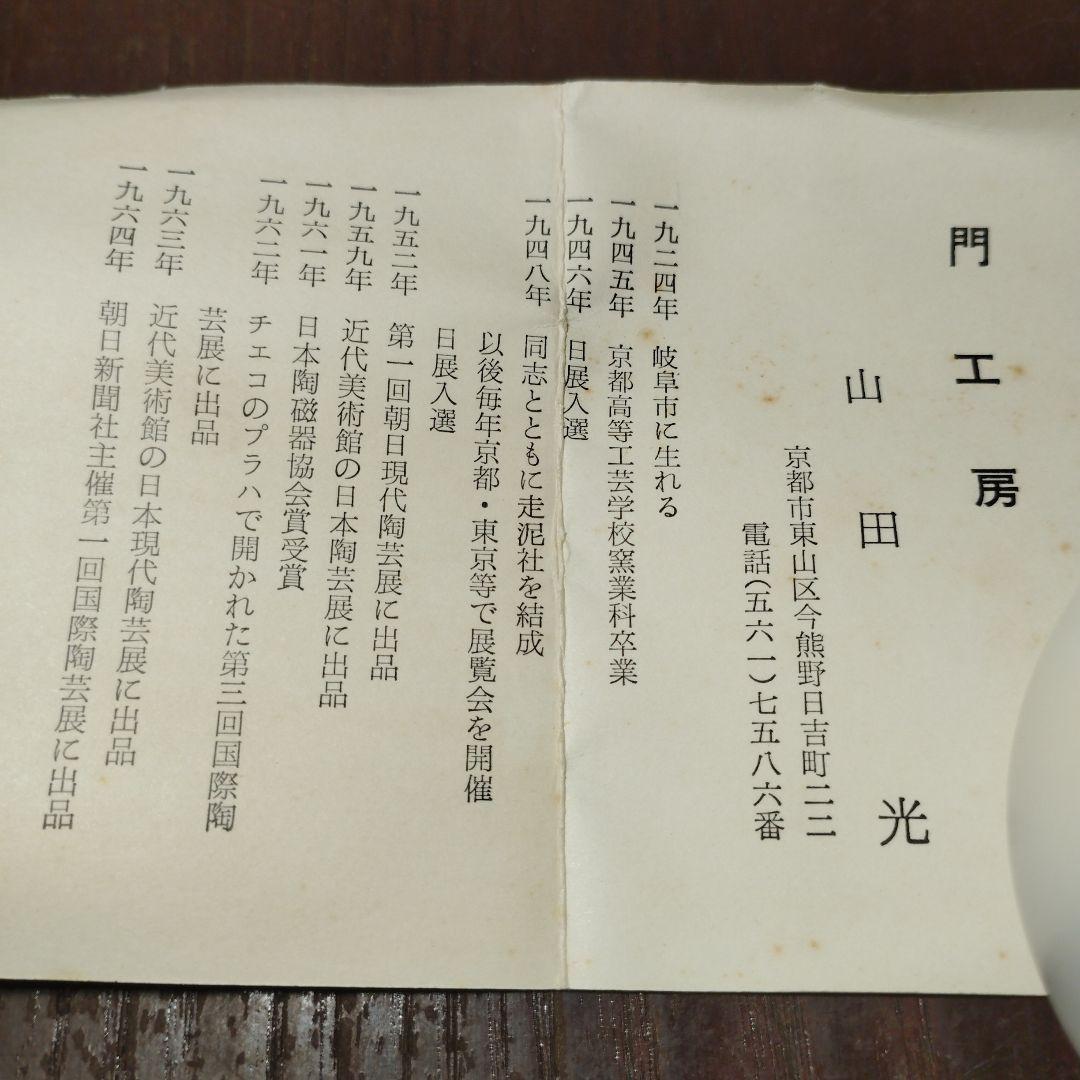 門工房
山田光
京都市東山区今熊野日吉町二二
電話(五六一)七五八六番
一九二四年 岐阜市に生れる
一九四五年 京都高等工芸学校窯業科卒業
一九四六年 日展入選
一九四八年 同志とともに走泥社を結成
以後毎年京都・東京等で展覧会を開催
日展入選
一九五二年 第一回朝日現代陶芸展に出品
一九五九年 近代美術館の日本陶芸展に出品
一九六一年 日本陶磁器協会賞受賞
一九六二年 チェコのプラハで開かれた第三回国際陶
芸展に出品
一九六三年 近代美術館の日本現代陶芸展に出品
一九六四年 朝日新聞社主催第一回国際陶芸展に出品